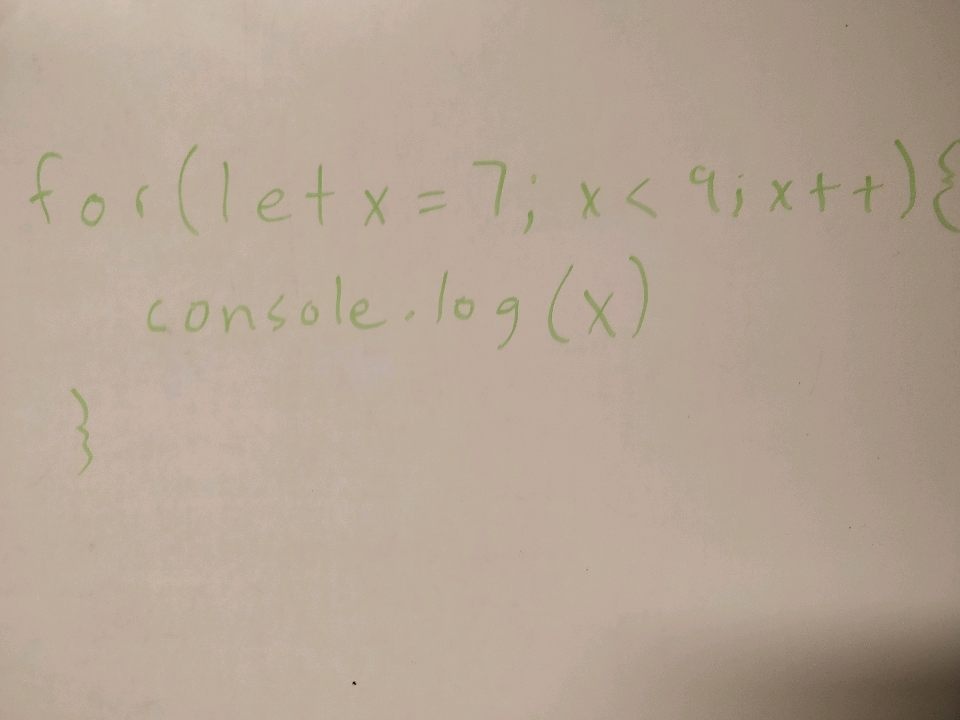 for(let x = 7; x < 9; x++){
console.log(x)
}